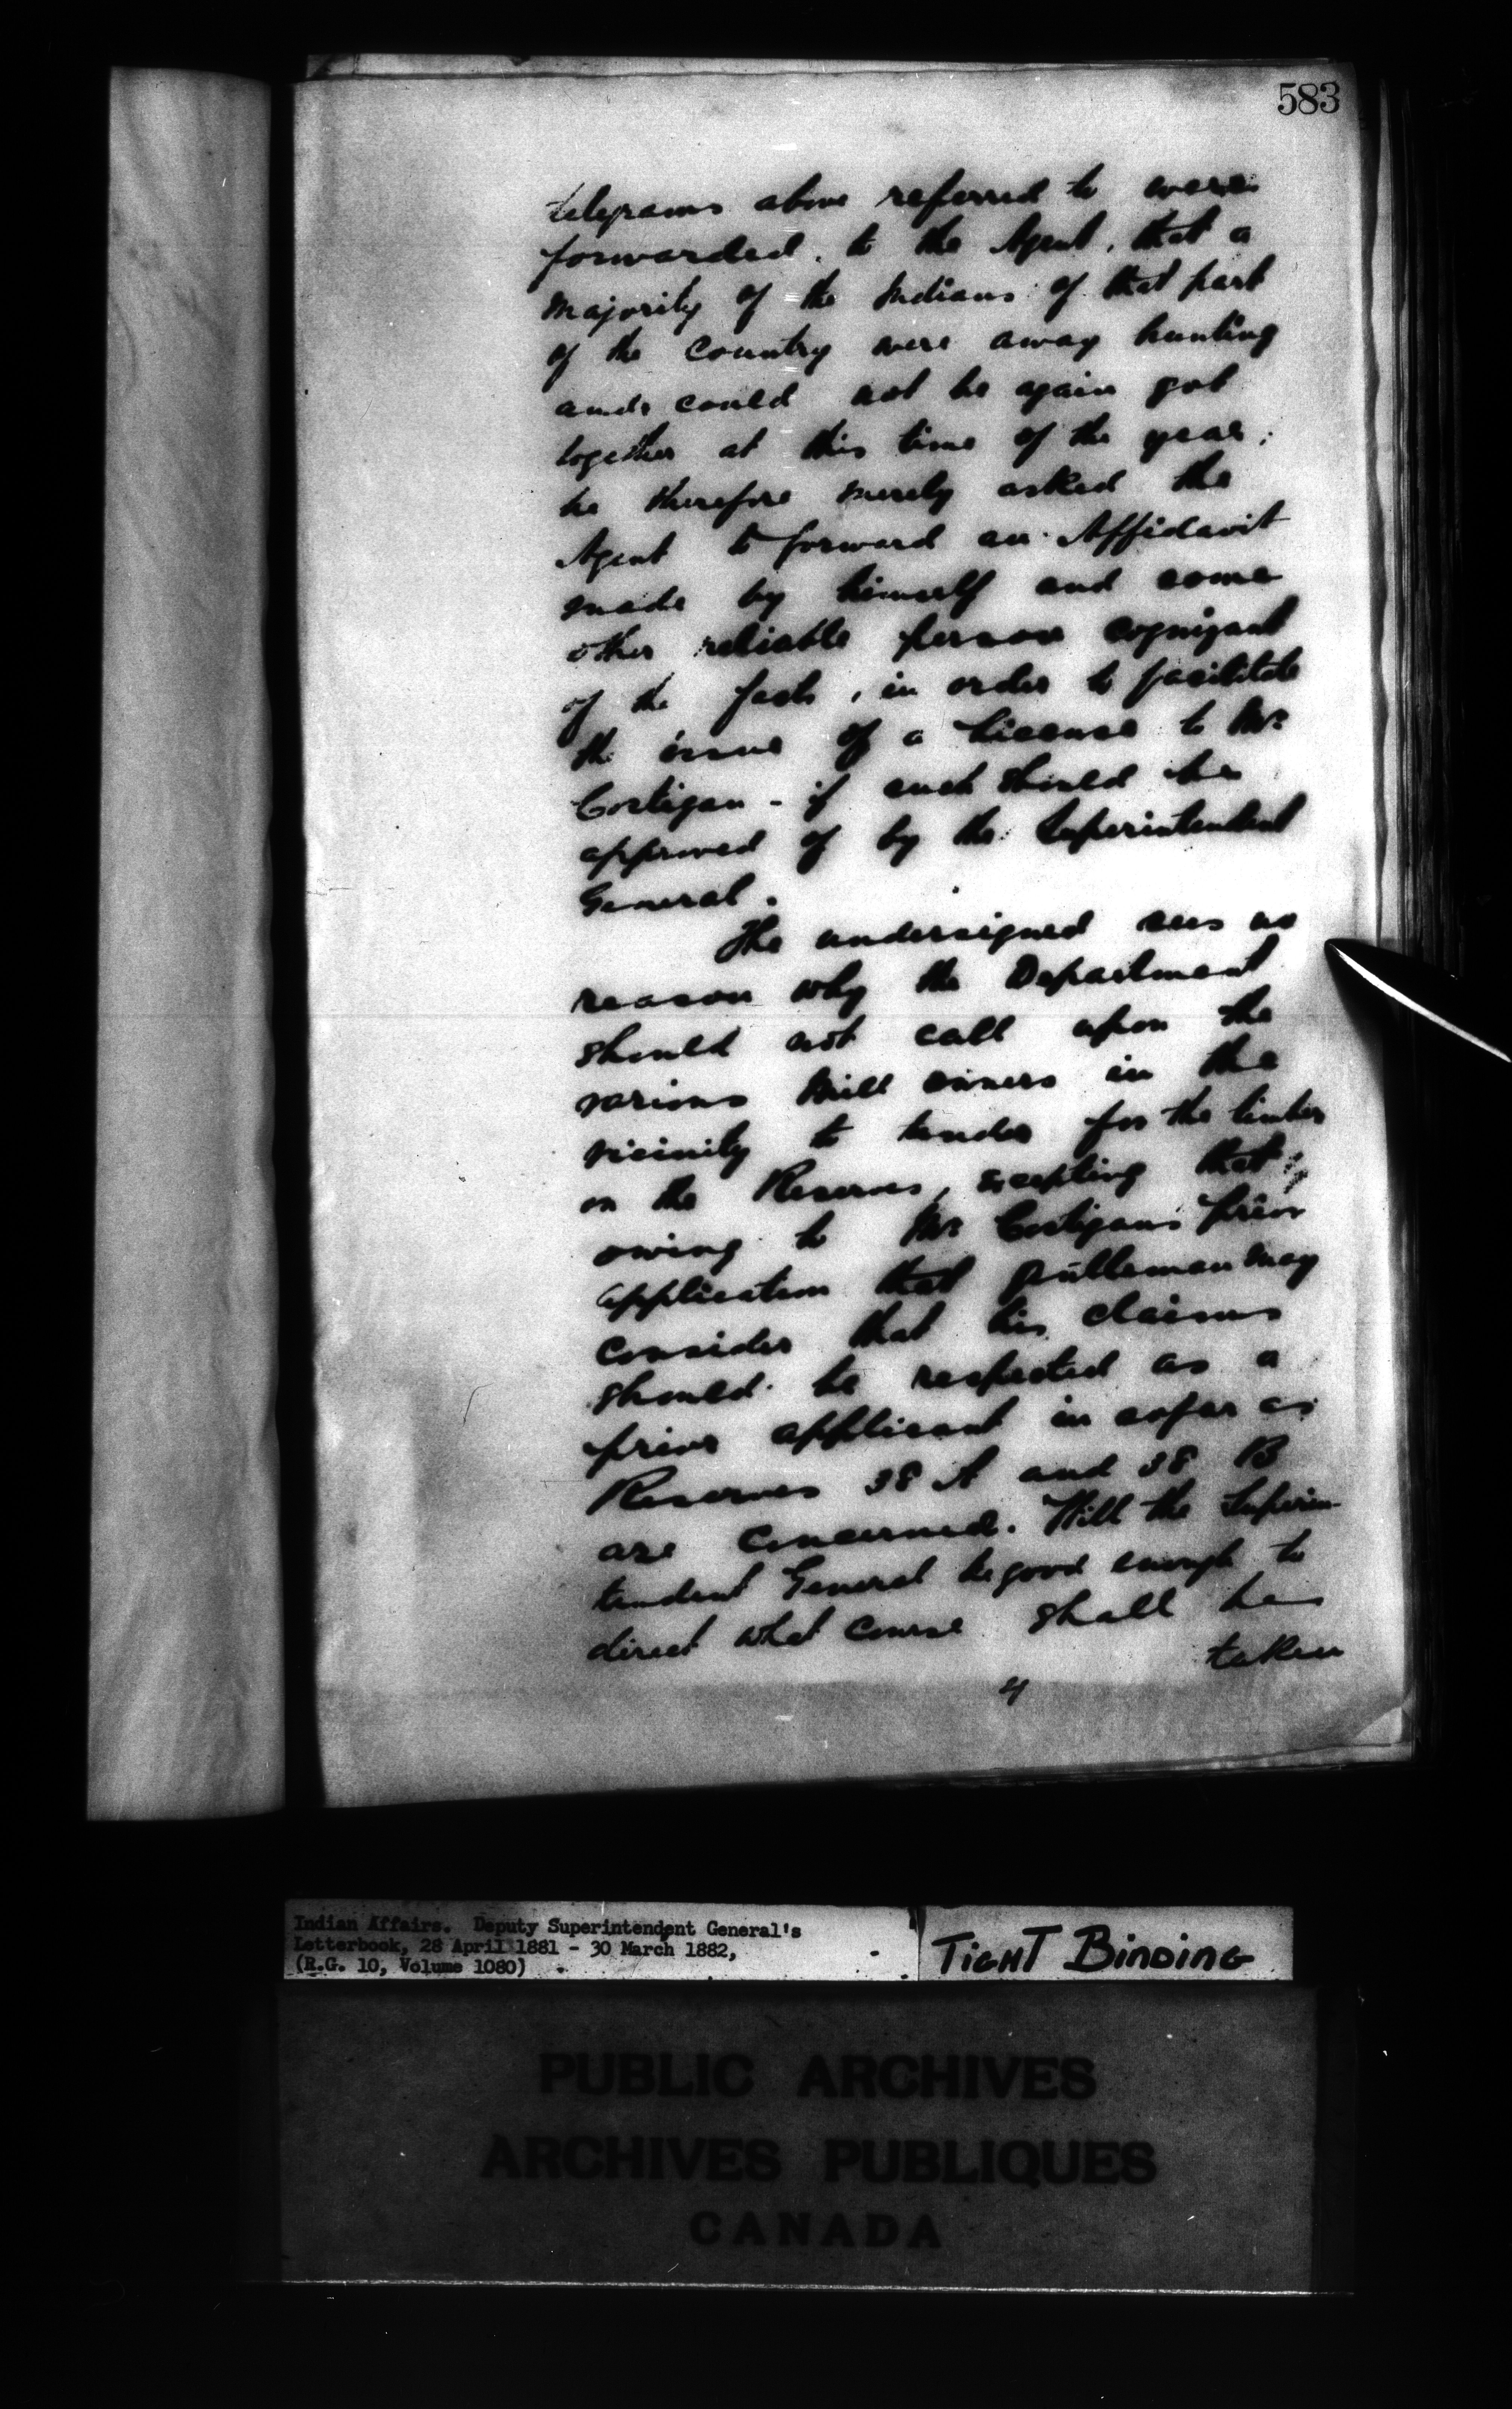 583
telegrams above referred to were
forwarded, to the Agent, that a
majority of the Indians of that part
of the Country were away hunting
and could not be again got
together at this time of the year;
he therefore merely asked the
Agent to forward an Affidavit
made by himself and some
other reliable person cognizant
of the facts, in order to facilitate
the issue of a license to Mr.
Costigan - if such should be
approved of by the Superintendent
General.
The undersigned sees no
reason why the Department
should not call upon the
various Mill owners in the
vicinity to tender for the timber
on the Reserves, excepting that,
owing to Mr. Costigans prior
application that gentleman may
consider that his claims
should be respected as a
prior applicant in so far as
Reserves 38 A and 38 B
are concerned. Will the Superin-
tendent General be good enough to
direct what course shall be
taken
4
Indian Affairs. Deputy Superintendent General's
Letterbook, 28 April 1881 - 30 March 1882,
(R.G. 10, Volume 1080)
TIGHT BINDING
PUBLIC ARCHIVES
ARCHIVES PUBLIQUES
CANADA